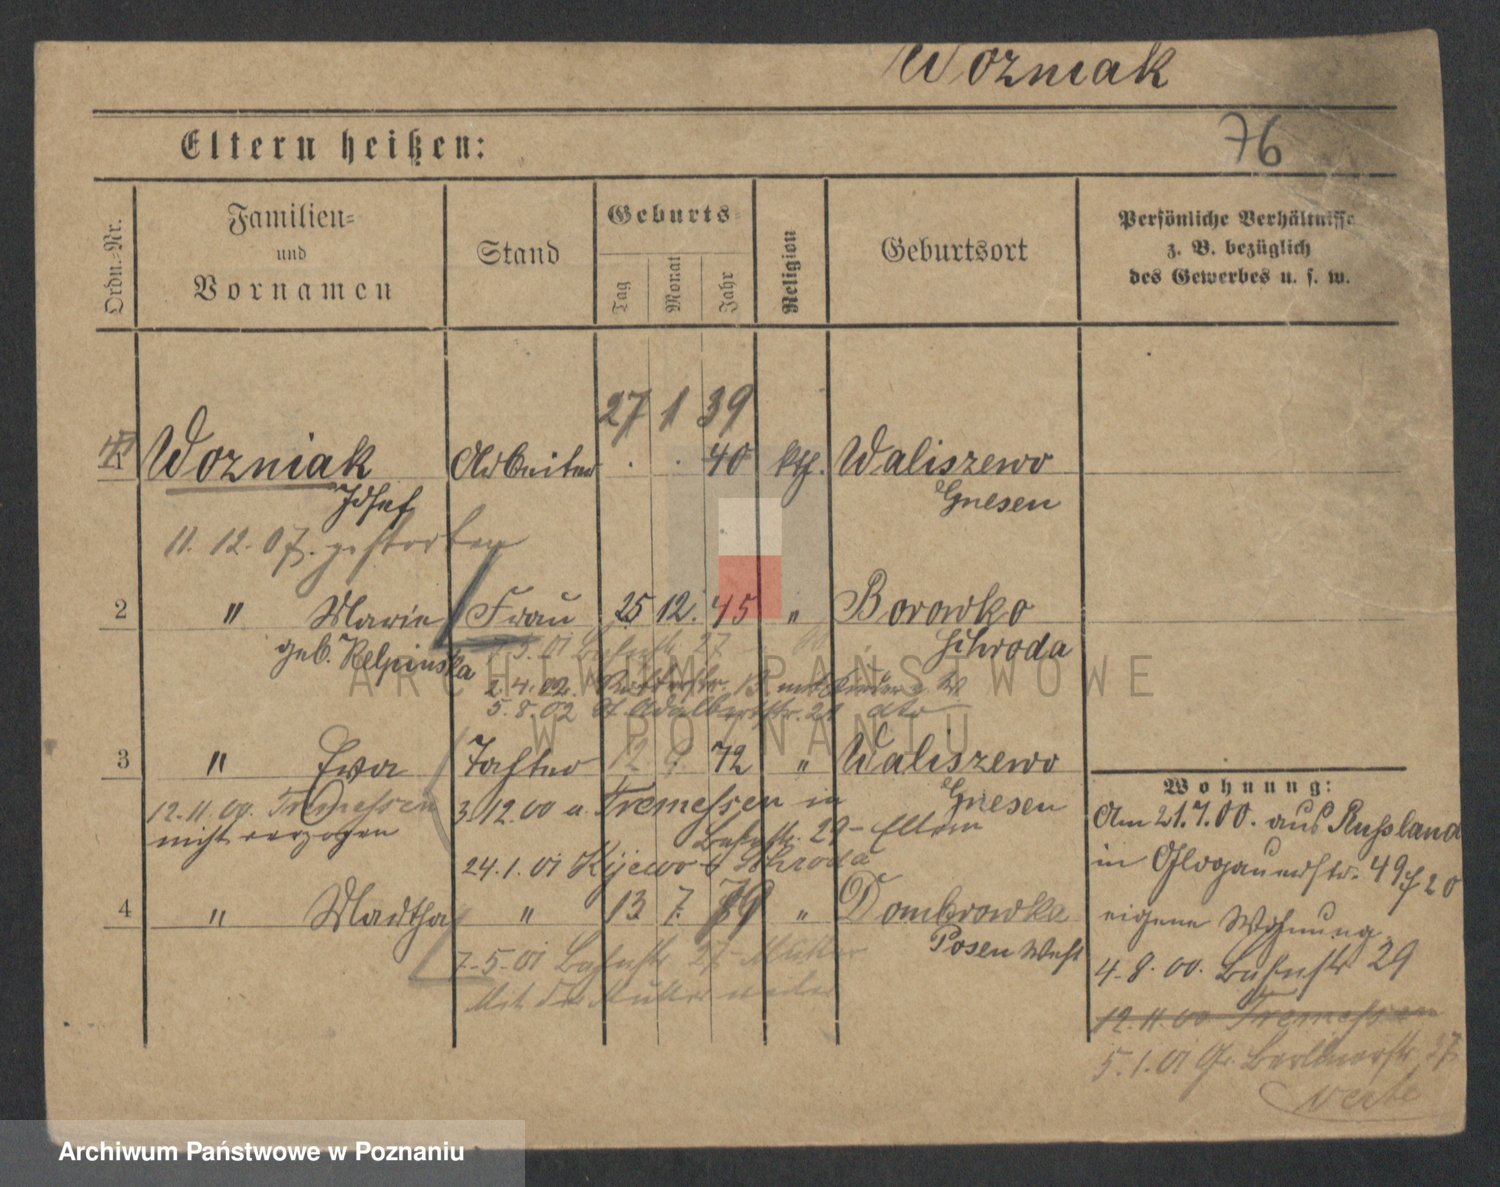 Wozniak
76
Eltern heißen:
Ordn.-Nr.
Familien- und Vornamen
Stand
Geburts-
Tag
Monat
Jahr
Religion
Geburtsort
Persönliche Verhältnisse z. B. bezüglich des Gewerbes u. s. w.
27 1 39
1 Wozniak Arbeiter . . 40 kth. Waliszewo
Josef Gnesen
11. 12. 07. gestorben
2 " Marie Frau 25 12. 45 " Borowko
geb. Kelpinska Schroda
7.5.01 Bahnstr 27
2.4.02. 13 mit
5.8.02 St Adalbertstr. 21 dto
3 " Ewa Tochter 12 9. 72 " Waliszewo
Gnesen
12.11.00. Tremessen 3.12.00 a. Tremessen in
nicht verzogen Bahnstr. 29 - Eltern
24.1.01 Kijewo b Schroda
4 " Martha " 13 7. 79 " Dombrowka
Posen West
7-5-01 Bahnstr 27 - Mutter
Mit der Mutter weiter
Wohnung:
Am 21.7.00. aus Russland
in Glogauerstr. 49 b 20
eigene Wohnung.
4.8.00. Bahnstr 29
12.11.00 Tremessen
5.1.01 Gr. Berlinerstr. 27
verte
ARCHIWUM PAŃSTWOWE
W POZNANIU
Archiwum Państwowe w Poznaniu